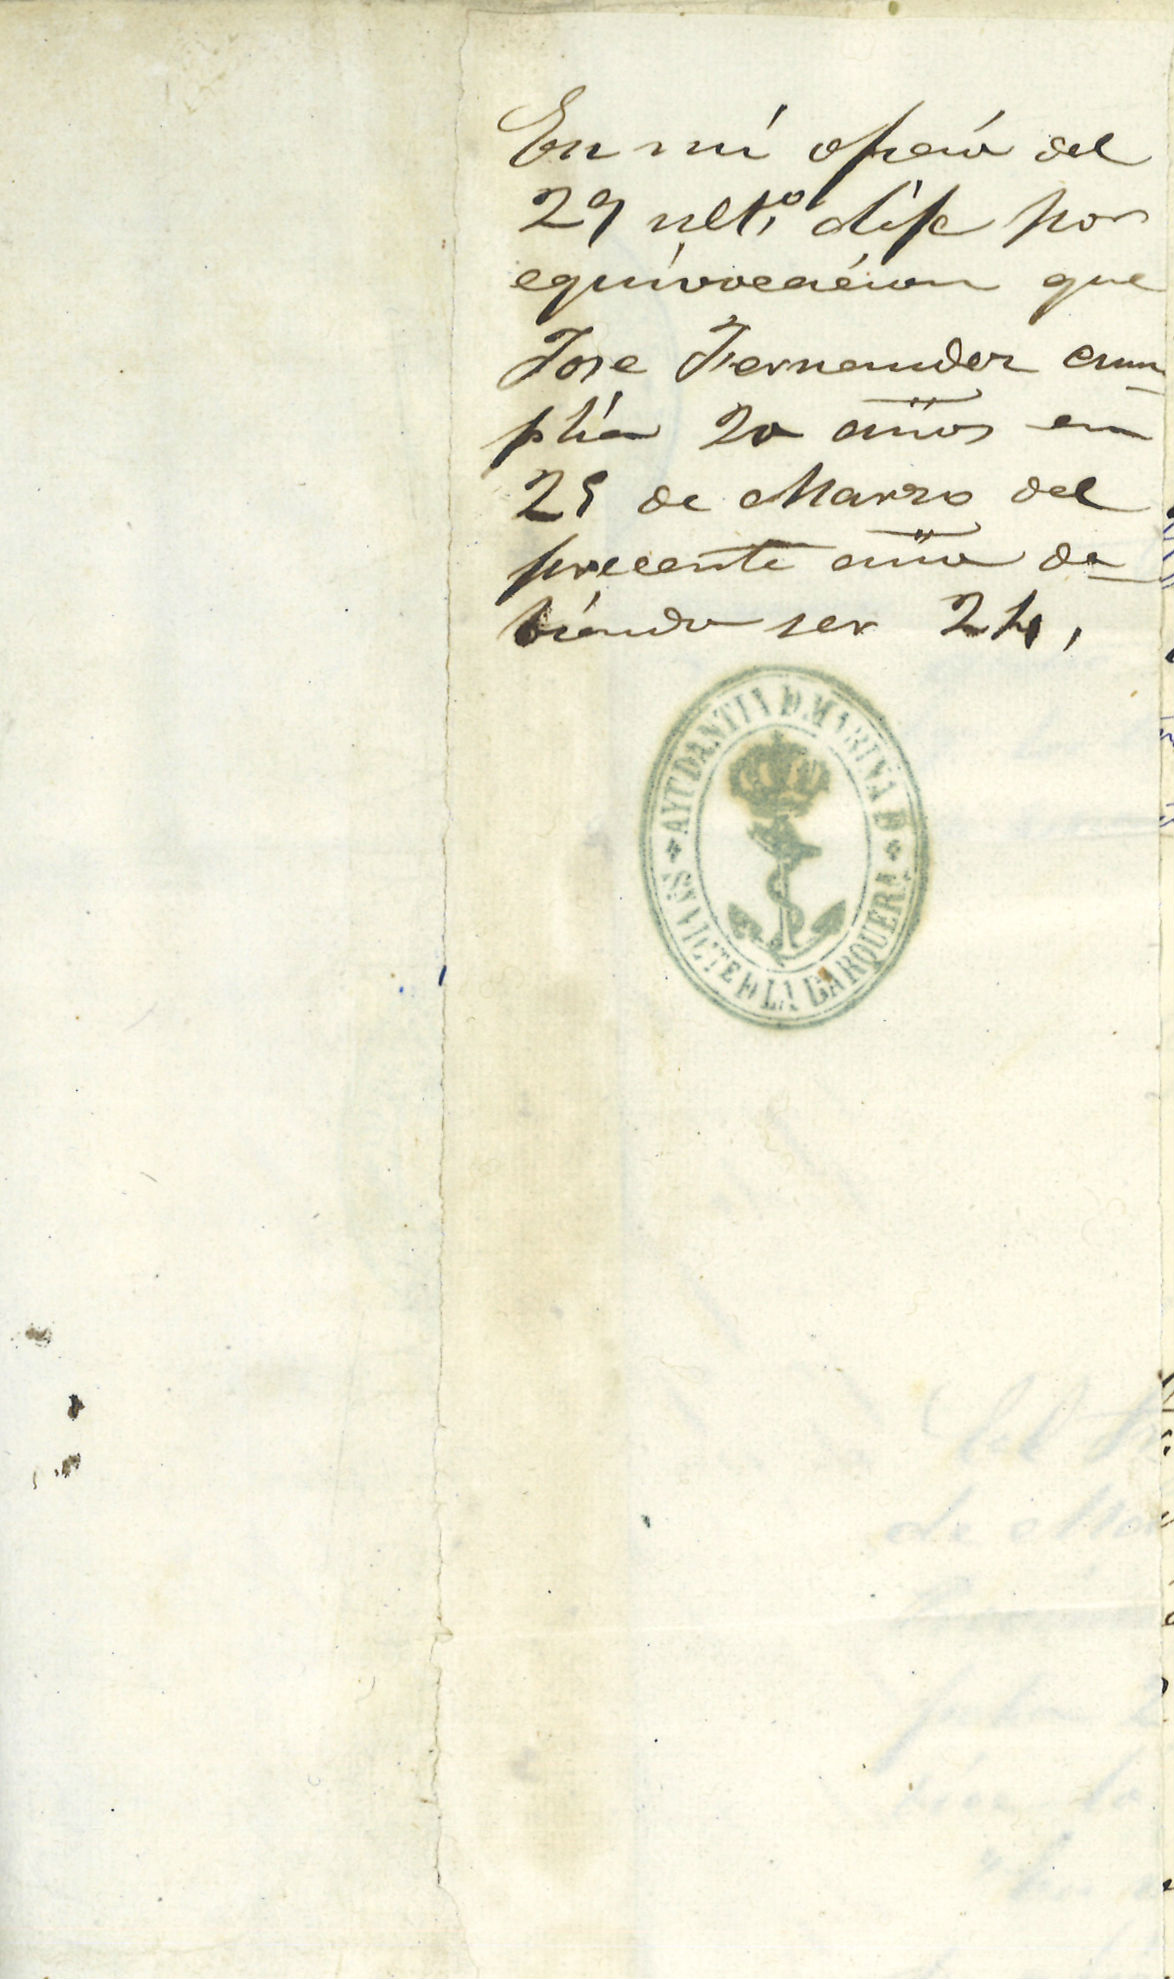 En mi oficio del
29 ult.º dije por
equivocacion que
Jose Fernandez cum
plia 20 años en
25 de Marzo del
precente año de
biendo ser 24,
AYUDANTIA D MARINA D
Sn VICTE D LA BARQUERA